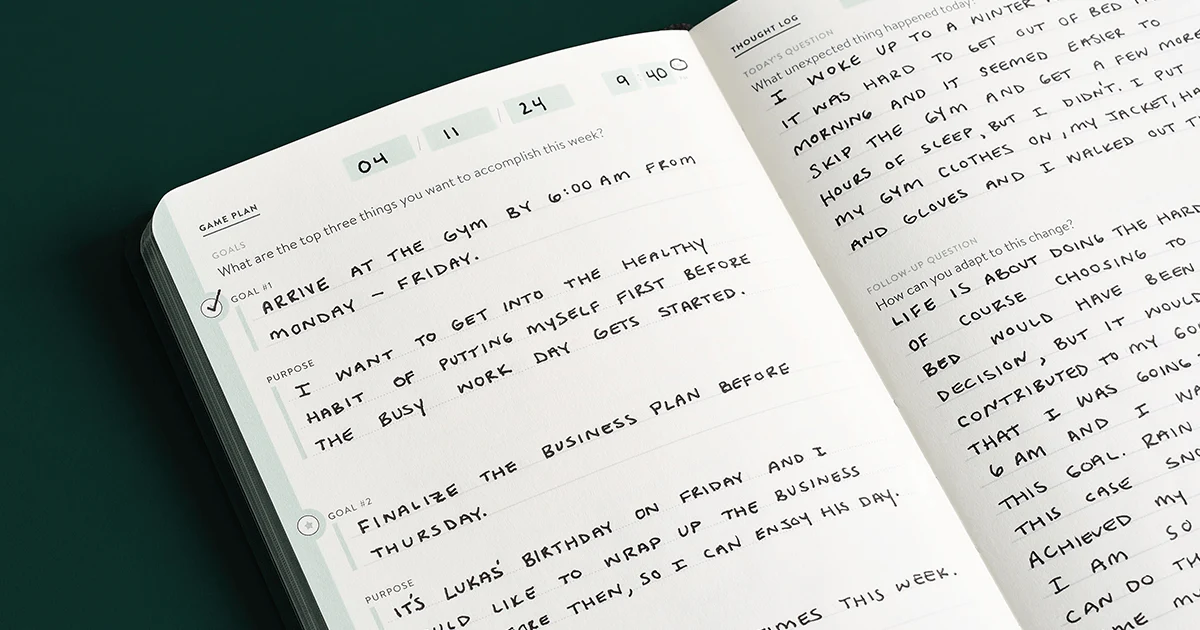 04 / 11 / 24
9 : 40
GAME PLAN
GOALS
What are the top three things you want to accomplish this week?
GOAL #1
ARRIVE AT THE GYM BY 6:00 AM FROM
MONDAY - FRIDAY.
PURPOSE
I WANT TO GET INTO THE HEALTHY
HABIT OF PUTTING MYSELF FIRST BEFORE
THE BUSY WORK DAY GETS STARTED.
GOAL #2
FINALIZE THE BUSINESS PLAN BEFORE
THURSDAY.
PURPOSE
IT'S LUKAS' BIRTHDAY ON FRIDAY AND I
LIKE TO WRAP UP THE BUSINESS
THEN, SO I CAN ENJOY HIS DAY.
THIS WEEK.
THOUGHT LOG
TODAY'S QUESTION
What unexpected thing happened today?
I WOKE UP TO A WINTER
IT WAS HARD TO GET OUT OF BED
MORNING AND IT SEEMED EASIER TO
SKIP THE GYM AND GET A FEW MORE
HOURS OF SLEEP, BUT I DIDN'T. I PUT
MY GYM CLOTHES ON, MY JACKET,
AND GLOVES AND I WALKED OUT
FOLLOW-UP QUESTION
How can you adapt to this change?
LIFE IS ABOUT DOING THE HARD
OF COURSE CHOOSING TO
BED WOULD HAVE BEEN
DECISION, BUT IT WOULD
CONTRIBUTED TO MY
THAT I WAS GOING
6 AM AND I
THIS GOAL. RAIN
THIS CASE
ACHIEVED MY
I AM SO
CAN DO